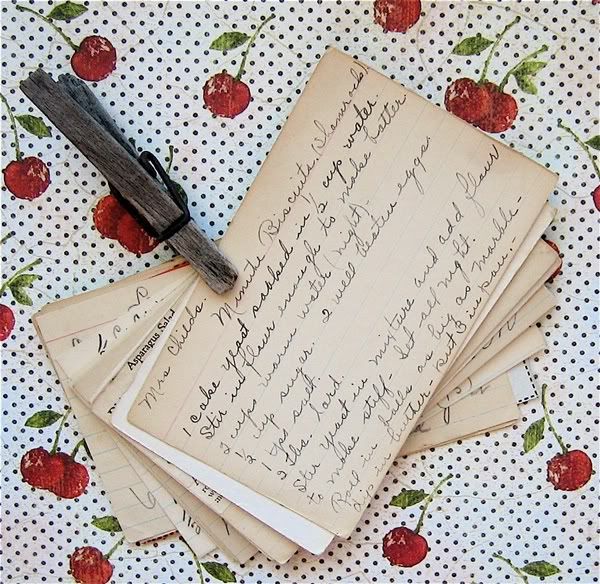 Mrs Childs.
Minute Biscuits. Shamrock
1 cake yeast soaked in ½ cup water.
Stir in flour enough to make batter
2 cups warm water (night).
½ cup sugar. 2 well beaten eggs.
1 tps salt.
2 tbs. lard.
Stir yeast in mixture and add flour
to make stiff. Set all night.
Roll in balls as big as marble-
dip in butter. Put 3 in pan.
Asparagus Salad